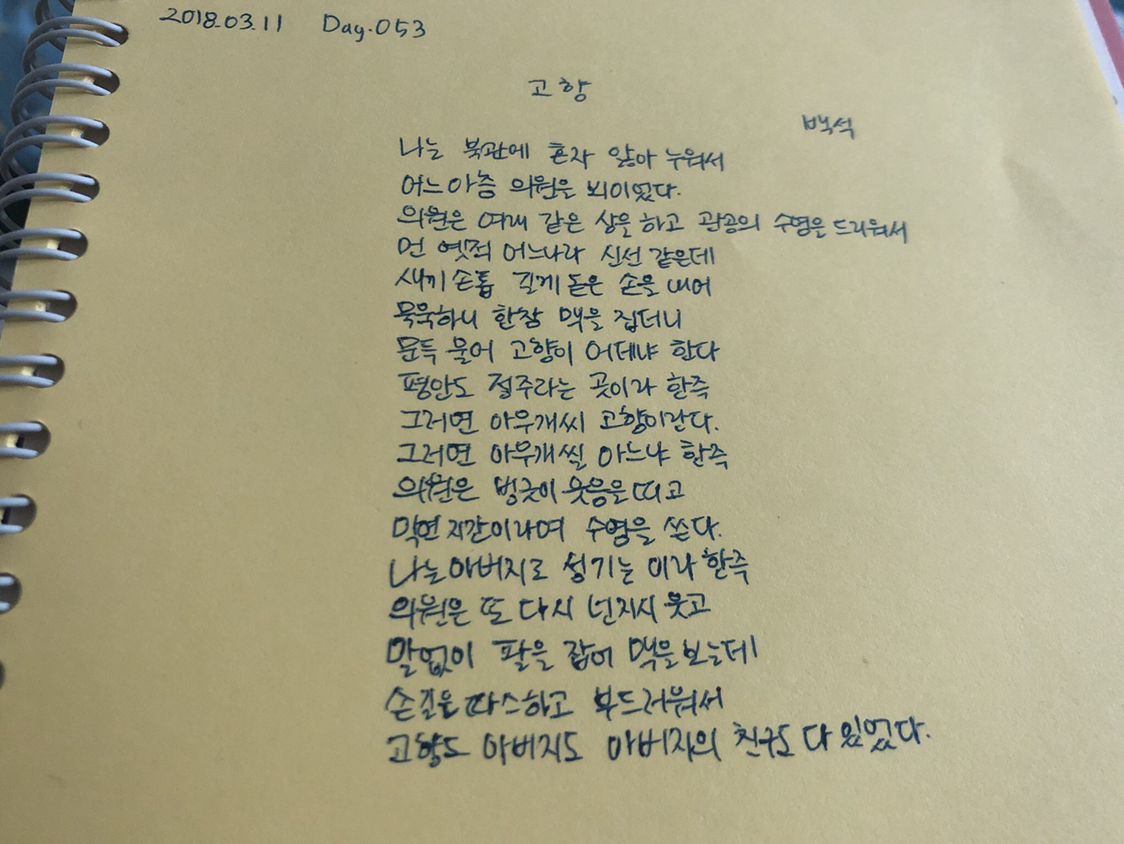 2018.03.11 Day.053
고향
백석
나는 북관에 혼자 앓아 누워서
어느 아츰 의원은 뵈이었다.
의원은 여래 같은 상을 하고 관공의 수염을 드리워서
먼 옛적 어느나라 신선 같은데
새끼 손톱 길게 돋은 손을 내어
묵묵하니 한참 맥을 집더니
문득 물어 고향이 어데냐 한다
평안도 정주라는 곳이라 한즉
그러면 아무개씨 고향이란다.
그러면 아무개씰 아느냐 한즉
의원은 빙긋이 웃음을 띠고
막연지간이라며 수염을 쓴다.
나는 아버지로 섬기는 이라 한즉
의원은 또 다시 넌지시 웃고
말없이 팔을 잡어 맥을 보는데
손길은 따스하고 부드러워서
고향도 아버지도 아버지의 친구도 다 있었다.